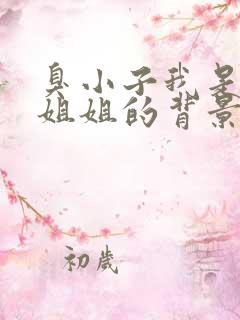 臭小子我是
姐姐的背景
初岁